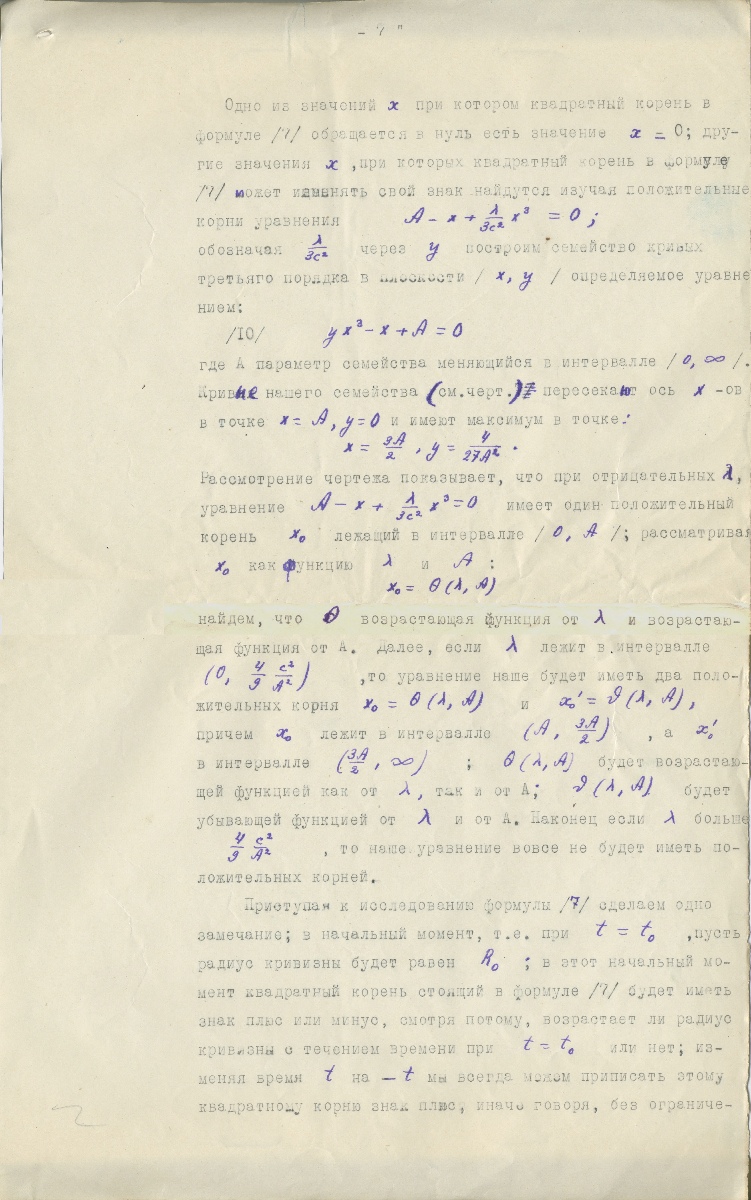 - 7 -
Одно из значений x при котором квадратный корень в
формуле /7/ обращается в нуль есть значение x = 0; дру-
гие значения x ,при которых квадратный корень в формуле
/7/ может изменять свой знак найдутся изучая положительные
корни уравнения A - x + λ/3c² x³ = 0 ;
обозначая λ/3c² через y построим семейство кривых
третьяго порядка в плоскости / x, y / определяемое уравне
нием:
/10/ yx³ - x + A = 0
где А параметр семейства меняющийся в интервалле / 0, ∞ /.
Кривые нашего семейства (см.черт.) пересекают ось x -ов
в точке x = A, y=0 и имеют максимум в точке:
x = 3A/2 , y = 4/27A² .
Рассмотрение чертежа показывает, что при отрицательных λ,
уравнение A - x + λ/3c² x³=0 имеет один положительный
корень x₀ лежащий в интервалле / 0, A /; рассматривая
x₀ как функцию λ и A :
x₀ = θ(λ, A)
найдем, что θ возрастающая функция от λ и возрастаю-
щая функция от А. Далее, если λ лежит в интервалле
(0, 4/9 c²/A²) ,то уравнение наше будет иметь два поло-
жительных корня x₀ = θ(λ, A) и x₀' = ϑ(λ, A),
причем x₀ лежит в интервалле (A, 3A/2) , а x₀'
в интервалле (3A/2, ∞) ; θ(λ, A) будет возрастаю-
щей функцией как от λ, так и от А; ϑ(λ, A) будет
убывающей функцией от λ и от А. Наконец если λ больше
4/9 c²/A² , то наше уравнение вовсе не будет иметь по-
ложительных корней.
Приступая к исследованию формулы /7/ сделаем одно
замечание; в начальный момент, т.е. при t = t₀ ,пусть
радиус кривизны будет равен R₀ ; в этот начальный мо-
мент квадратный корень стоящий в формуле /7/ будет иметь
знак плюс или минус, смотря потому, возрастает ли радиус
кривизны с течением времени при t = t₀ или нет; из-
меняя время t на -t мы всегда можем приписать этому
квадратному корню знак плюс, иначе говоря, без ограниче-